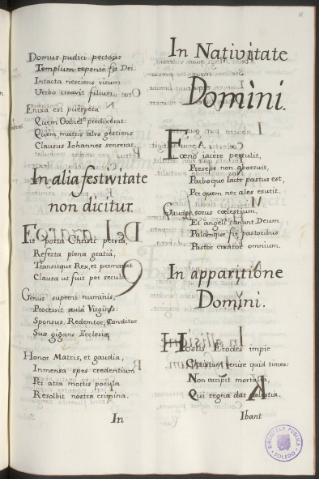 Domus pudici pectoris
Templum repente fit Dei
Intacta nesciens virum
Verbo creavit filium.
Enixa est puerpera
Quem Gabriel predixerat
Quem matris alvo gestiens
Clausus Johannes senserat
In alia festivitate
non dicitur.
Fit porta Christi pervia,
Referta plena gratia,
Transitque Rex, et permanet
Clausa ut fuit per secula.
Genus superni numinis,
Processit aula Virginis
Sponsus, Redemtor, Conditor
Suæ gigans Ecclesiæ
Honor Matris, et gaudia,
Inmensa spes credentium
Per atra mortis pocula
Resolvit nostra crimina.
In
In Nativitate
Domini.
Fœno jacere pertulit,
Presepe non abhorruit,
Parvoque lacte pastus est,
Per quem nec ales esurit.
Gaudet chorus cœlestium,
Et angeli canunt Deum
Palamque fit pastoribus
Pastor creator omnium.
In apparitione
Domini.
Hostis Herodes impie
Christum venire quid times:
Non arripit mortalia,
Qui regna dat cælestia.
Ibant
BIBLIOTECA PUBLICA
TOLEDO